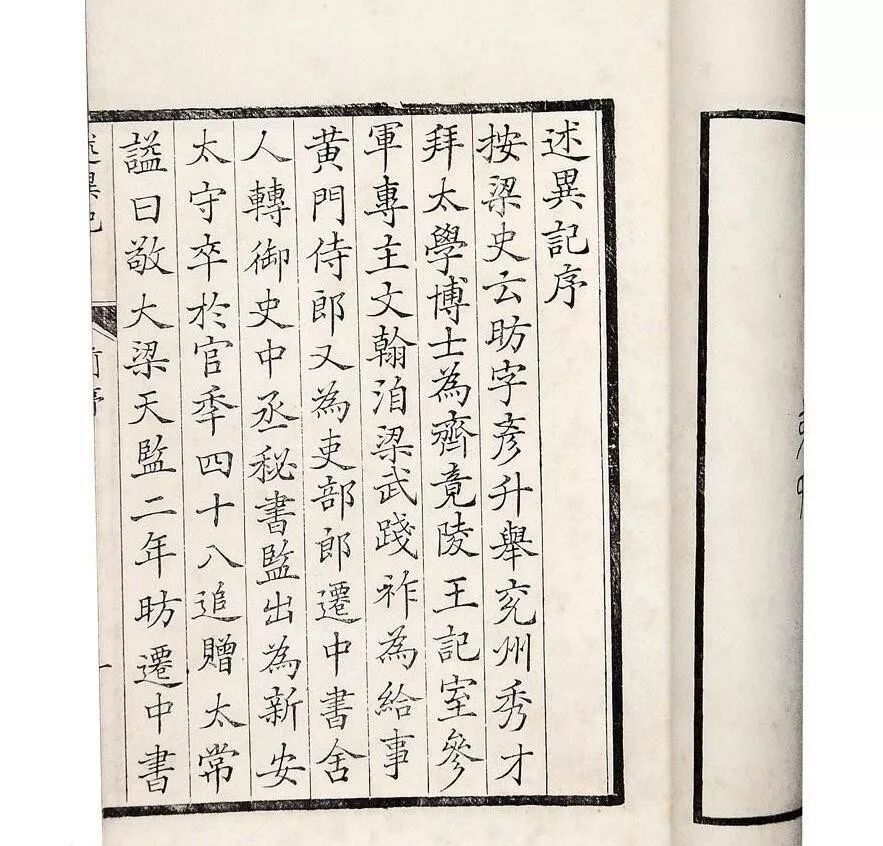 述異記序
按梁史云昉字彥升舉兖州秀才
拜太學博士為齊竟陵王記室參
軍專主文翰洎梁武踐祚為給事
黃門侍郎又為吏部郎遷中書舍
人轉御史中丞秘書監出為新安
太守卒於官季四十八追贈太常
諡曰敬大梁天監二年昉遷中書